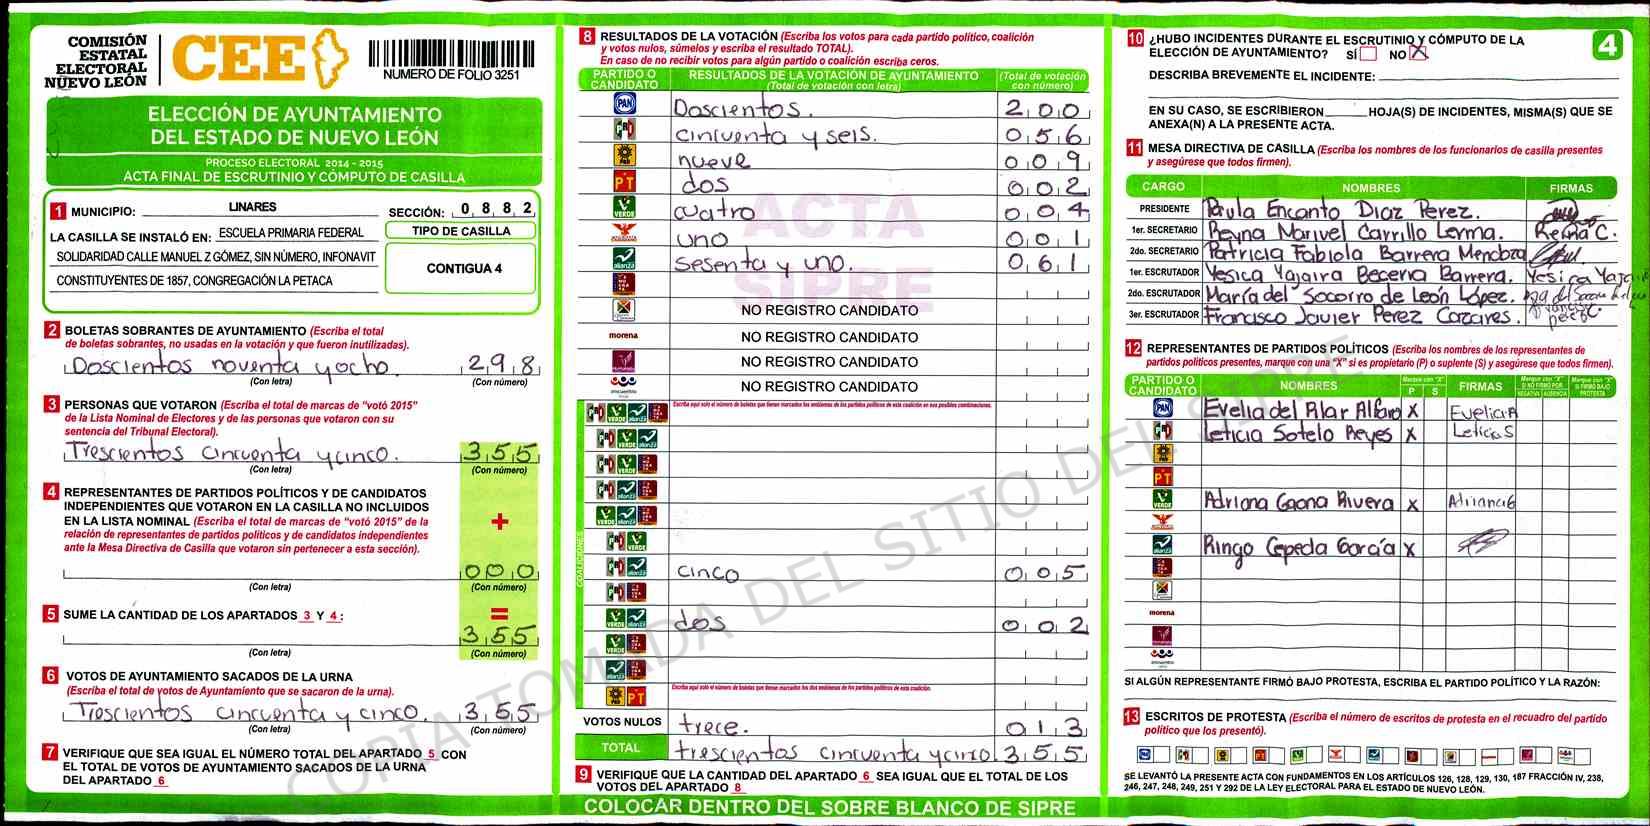 COMISIÓN
ESTATAL
ELECTORAL
NUEVO LEÓN
CEE
NUMERO DE FOLIO 3251
ELECCIÓN DE AYUNTAMIENTO
DEL ESTADO DE NUEVO LEÓN
PROCESO ELECTORAL 2014 - 2015
ACTA FINAL DE ESCRUTINIO Y CÓMPUTO DE CASILLA
1 MUNICIPIO: LINARES SECCIÓN: 0 8 8 2
LA CASILLA SE INSTALÓ EN: ESCUELA PRIMARIA FEDERAL
SOLIDARIDAD CALLE MANUEL Z GÓMEZ, SIN NÚMERO, INFONAVIT
CONSTITUYENTES DE 1857, CONGREGACIÓN LA PETACA
TIPO DE CASILLA
CONTIGUA 4
2 BOLETAS SOBRANTES DE AYUNTAMIENTO (Escriba el total
de boletas sobrantes, no usadas en la votación y que fueron inutilizadas).
Doscientos noventa y ocho. 2 9 8
(Con letra) (Con número)
3 PERSONAS QUE VOTARON (Escriba el total de marcas de "votó 2015"
de la Lista Nominal de Electores y de las personas que votaron con su
sentencia del Tribunal Electoral).
Trescientos cincuenta y cinco. 3 5 5
(Con letra) (Con número)
4 REPRESENTANTES DE PARTIDOS POLÍTICOS Y DE CANDIDATOS
INDEPENDIENTES QUE VOTARON EN LA CASILLA NO INCLUIDOS
EN LA LISTA NOMINAL (Escriba el total de marcas de "votó 2015" de la
relación de representantes de partidos políticos y de candidatos independientes
ante la Mesa Directiva de Casilla que votaron sin pertenecer a esta sección).
+
0 0 0
(Con letra) (Con número)
5 SUME LA CANTIDAD DE LOS APARTADOS 3 Y 4 : =
3 5 5
(Con letra) (Con número)
6 VOTOS DE AYUNTAMIENTO SACADOS DE LA URNA
(Escriba el total de votos de Ayuntamiento que se sacaron de la urna).
Trescientos cincuenta y cinco. 3 5 5
(Con letra) (Con número)
7 VERIFIQUE QUE SEA IGUAL EL NÚMERO TOTAL DEL APARTADO 5 CON
EL TOTAL DE VOTOS DE AYUNTAMIENTO SACADOS DE LA URNA
DEL APARTADO 6
8 RESULTADOS DE LA VOTACIÓN (Escriba los votos para cada partido político, coalición
y votos nulos, súmelos y escriba el resultado TOTAL).
En caso de no recibir votos para algún partido o coalición escriba ceros.
PARTIDO O
CANDIDATO
RESULTADOS DE LA VOTACIÓN DE AYUNTAMIENTO
(Total de votación con letra)
(Total de votación
con número)
PAN Doscientos. 2 0 0
PRI cincuenta y seis. 0 5 6
PRD nueve 0 0 9
PT dos 0 0 2
VERDE cuatro 0 0 4
uno 0 0 1
alianza sesenta y uno. 0 6 1
ACTA
SIPRE
NO REGISTRO CANDIDATO
morena NO REGISTRO CANDIDATO
NO REGISTRO CANDIDATO
NO REGISTRO CANDIDATO
COALICIONES
Escriba aquí solo el número de boletas que tienen marcados los emblemas de los partidos políticos de esta coalición en sus posibles combinaciones.
PRI alianza cinco 0 0 5
VERDE alianza dos 0 0 2
Escriba aquí solo el número de boletas que tiene marcados los dos emblemas de los partidos políticos de esta coalición.
PRD PT
VOTOS NULOS trece. 0 1 3
TOTAL trescientos cincuenta y cinco. 3 5 5
9 VERIFIQUE QUE LA CANTIDAD DEL APARTADO 6 SEA IGUAL QUE EL TOTAL DE LOS
VOTOS DEL APARTADO 8
COLOCAR DENTRO DEL SOBRE BLANCO DE SIPRE
10 ¿HUBO INCIDENTES DURANTE EL ESCRUTINIO Y CÓMPUTO DE LA
ELECCIÓN DE AYUNTAMIENTO? SÍ NO X
4
DESCRIBA BREVEMENTE EL INCIDENTE:
EN SU CASO, SE ESCRIBIERON HOJA(S) DE INCIDENTES, MISMA(S) QUE SE
ANEXA(N) A LA PRESENTE ACTA.
11 MESA DIRECTIVA DE CASILLA (Escriba los nombres de los funcionarios de casilla presentes
y asegúrese que todos firmen).
CARGO NOMBRES FIRMAS
PRESIDENTE Paula Encanto Diaz Perez.
1er. SECRETARIO Reyna Marivel Carrillo Lerma. Reyna C.
2do. SECRETARIO Patricia Fabiola Barrera Mendoza
1er. ESCRUTADOR Yesica Yajaira Becerra Barrera. Yesica Yajaira
2do. ESCRUTADOR María del Socorro de León López.
3er. ESCRUTADOR Francisco Javier Perez Cazares. Francisco perez C.
12 REPRESENTANTES DE PARTIDOS POLÍTICOS (Escriba los nombres de los representantes de
partidos políticos presentes, marque con una "X" si es propietario (P) o suplente (S) y asegúrese que todos firmen).
PARTIDO O
CANDIDATO
NOMBRES
Marque con "X"
P S
FIRMAS
Marque con "X"
SI NO FIRMÓ POR
NEGATIVA AUSENCIA
Marque con "X"
SI FIRMÓ BAJO
PROTESTA
PAN Evelia del Pilar Alfaro X Evelia A
PRI Leticia Sotelo Reyes X Leticia S
PRD
PT
VERDE Adriana Gaona Rivera X Adriana G
alianza Ringo Cepeda García X
morena
SI ALGÚN REPRESENTANTE FIRMÓ BAJO PROTESTA, ESCRIBA EL PARTIDO POLÍTICO Y LA RAZÓN:
13 ESCRITOS DE PROTESTA (Escriba el número de escritos de protesta en el recuadro del partido
político que los presentó).
SE LEVANTÓ LA PRESENTE ACTA CON FUNDAMENTOS EN LOS ARTÍCULOS 126, 128, 129, 130, 187 FRACCIÓN IV, 238,
246, 247, 248, 249, 251 Y 292 DE LA LEY ELECTORAL PARA EL ESTADO DE NUEVO LEÓN.
COPIA TOMADA DEL SITIO DEL SIPRE